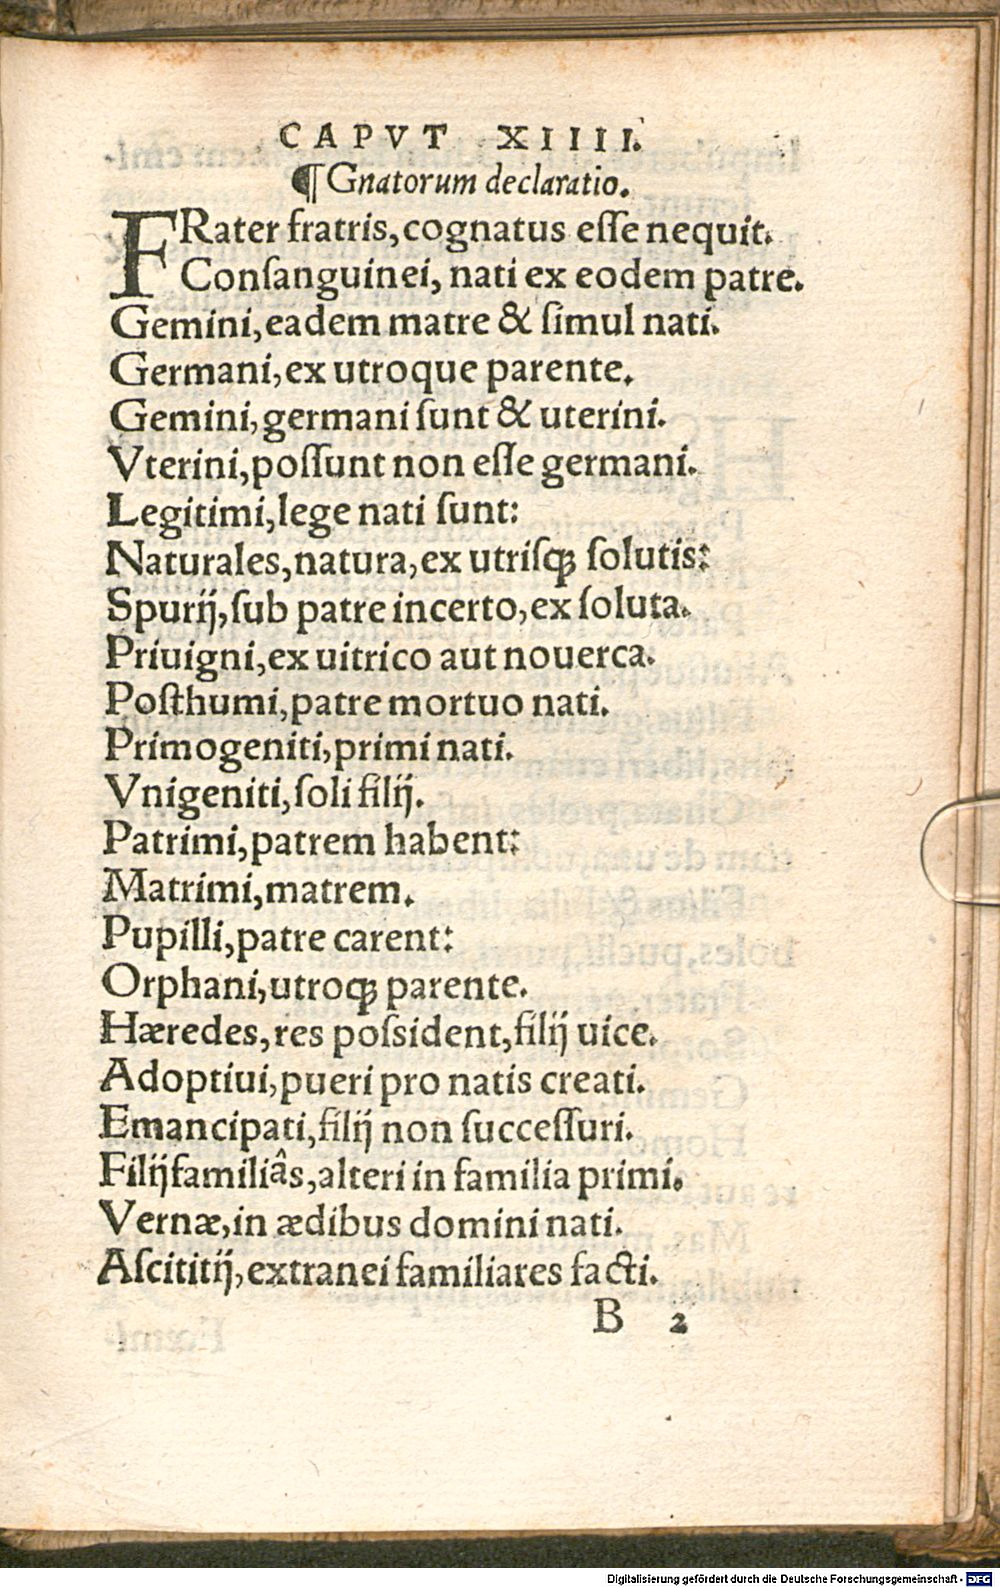 CAPVT XIIII.
¶ Gnatorum declaratio.
FRater fratris, cognatus eſſe nequit.
Conſanguinei, nati ex eodem patre.
Gemini, eadem matre & ſimul nati.
Germani, ex utroque parente.
Gemini, germani ſunt & uterini.
Vterini, poſſunt non eſſe germani.
Legitimi, lege nati ſunt:
Naturales, natura, ex utriſqꝫ ſolutis:
Spurij, ſub patre incerto, ex ſoluta.
Priuigni, ex uitrico aut nouerca.
Poſthumi, patre mortuo nati.
Primogeniti, primi nati.
Vnigeniti, ſoli filij.
Patrimi, patrem habent:
Matrimi, matrem.
Pupilli, patre carent:
Orphani, utroqꝫ parente.
Hæredes, res poſsident, filij uice.
Adoptiui, pueri pro natis creati.
Emancipati, filij non ſucceſſuri.
Filijfamiliâs, alteri in familia primi.
Vernæ, in ædibus domini nati.
Aſcititij, extranei familiares facti.
B 2
Digitalisierung gefördert durch die Deutsche Forschungsgemeinschaft - DFG